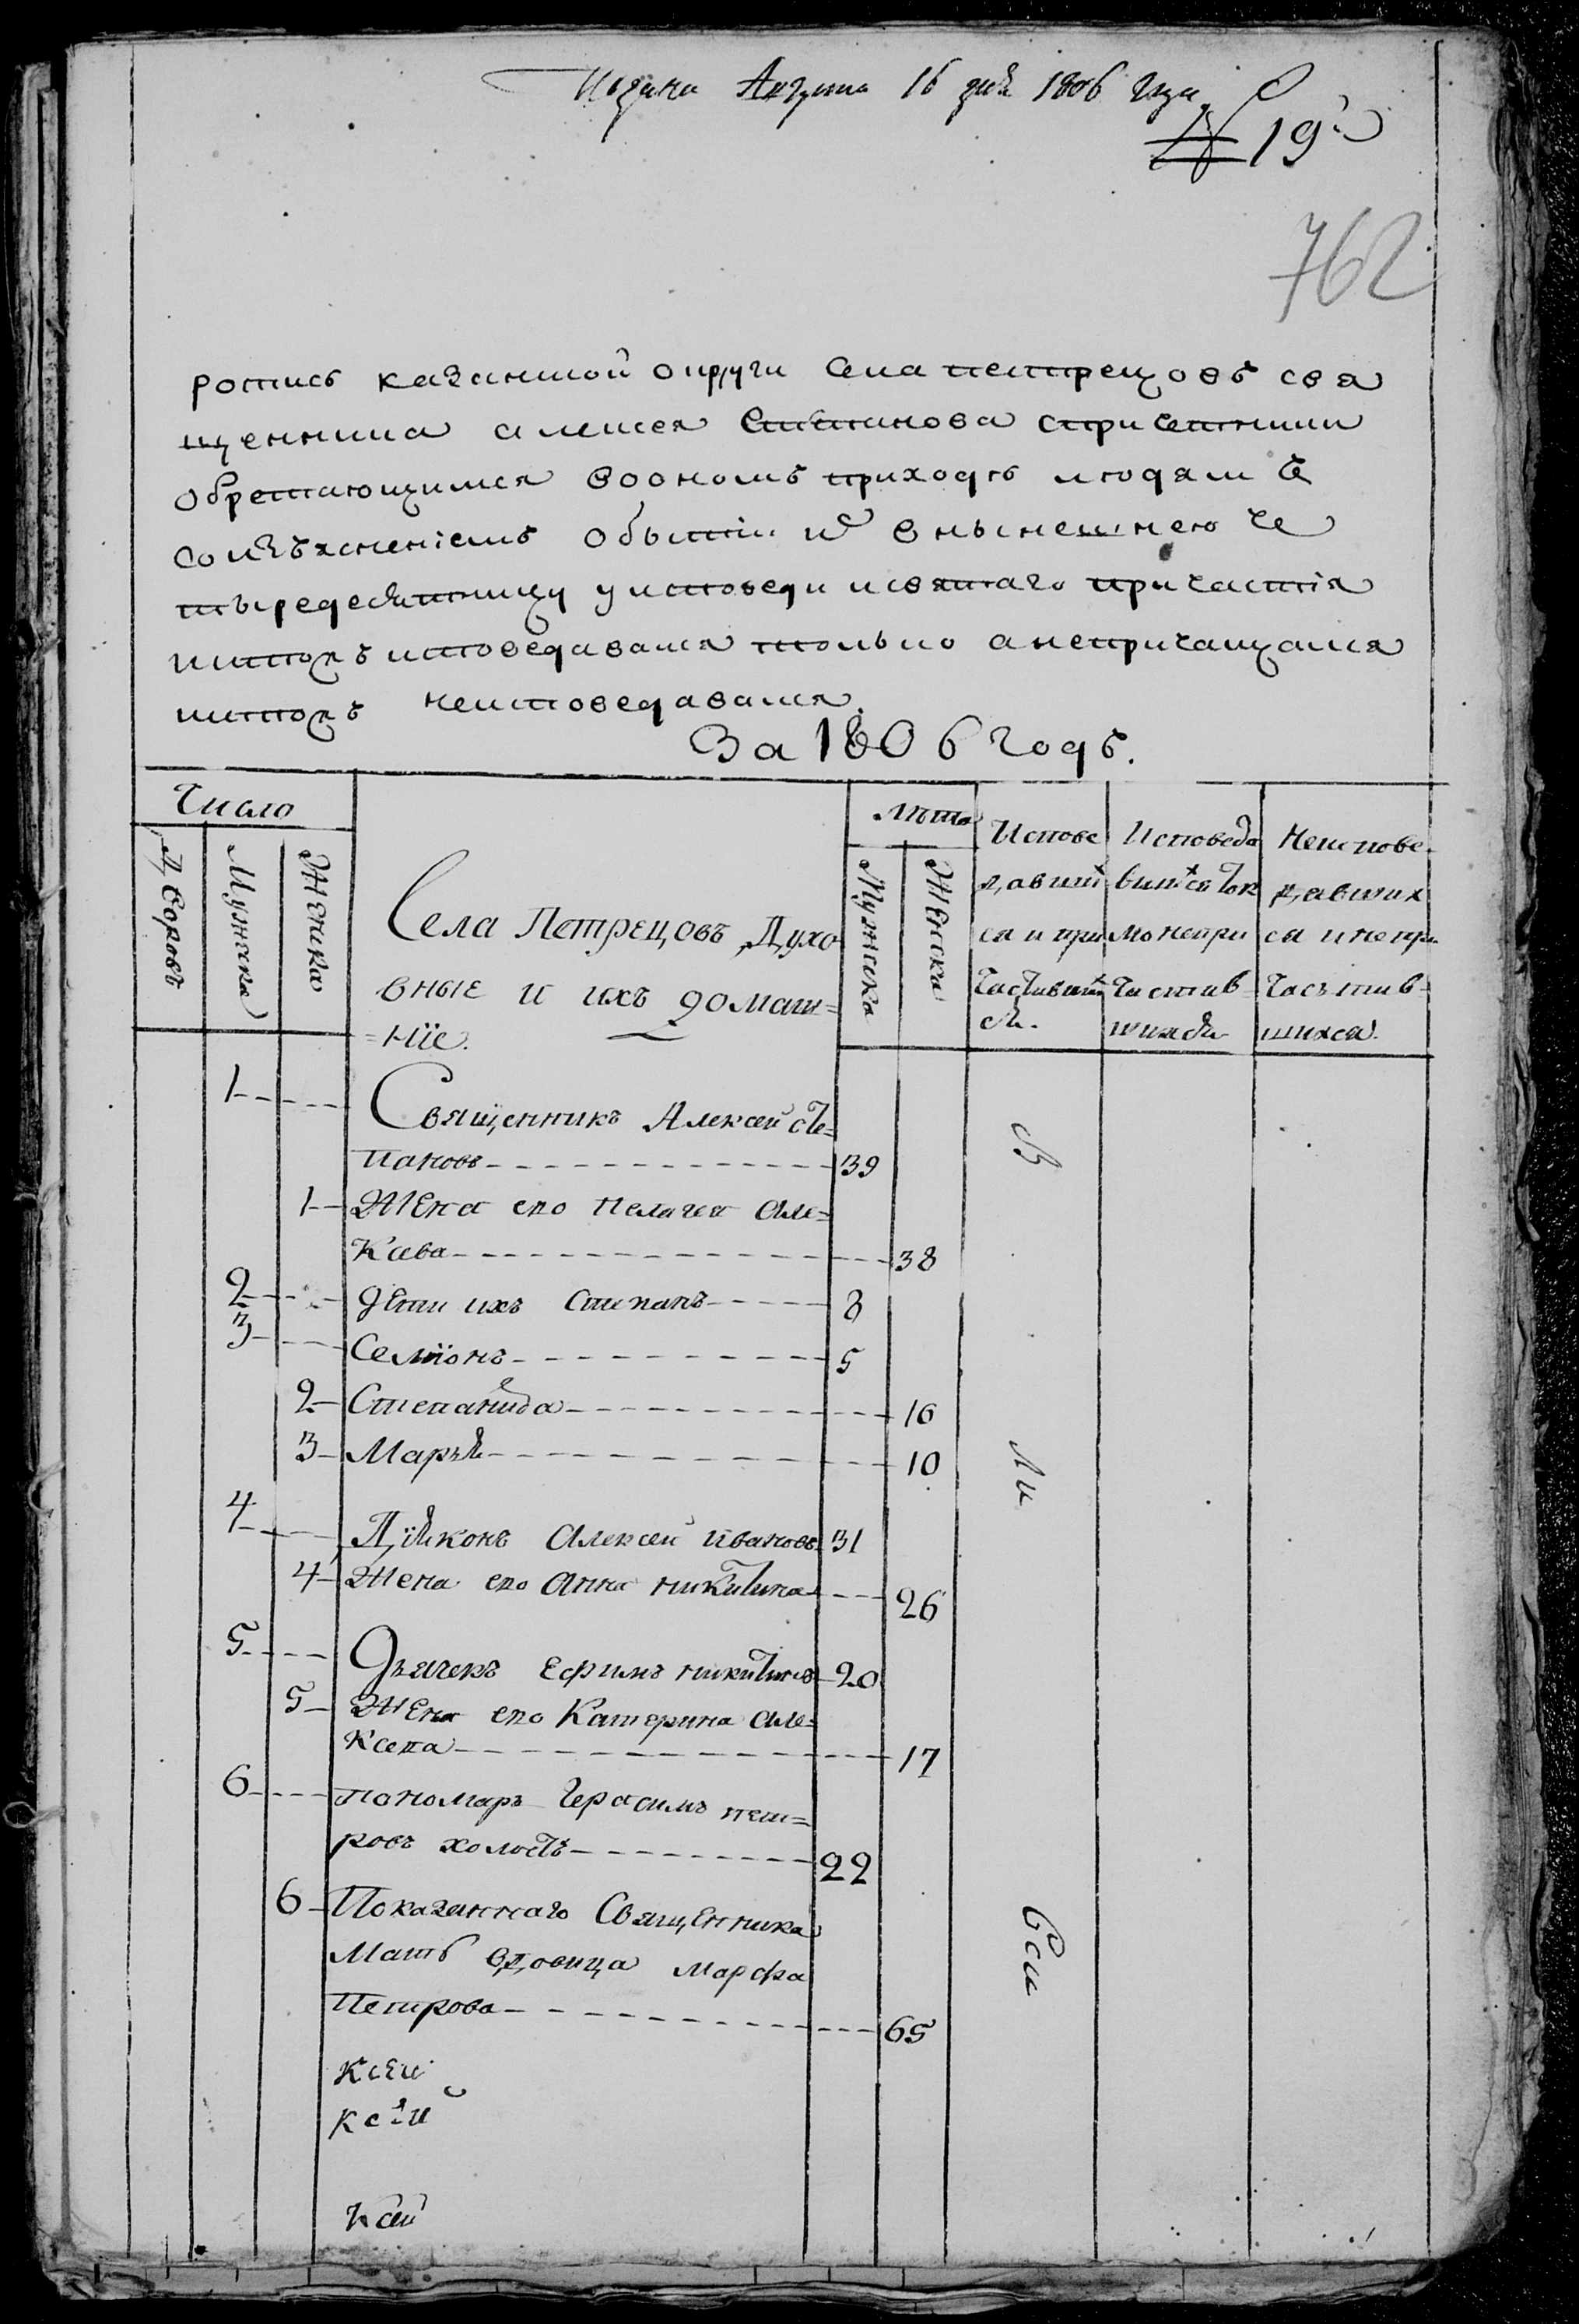 Подана Августа 16 дня 1806 года
№ 19й
762
роспись казанской округи села пестрецовъ свя
щенника алексея степанова спричетники
обретающимся воономъ приходѣ людям съ
со изъяснениемъ обытіи их внынешнею че
тыредесятницу уисповеди исвятаго причастія
иктожъ исповедавался только анепричащался
иктожъ неисповедавался.
За 1806 годъ.
Число
Дворовъ
Мужска
Женска
Села Пестрецовъ Духо
вные и ихъ домаш=
=нїе.
Лѣта
Мужска
Женска
Испове
давших
ся и при
частивших
ся.
Исповеда
вшихся тол
ко непри
частив
шихся
Неиспове-
давших
ся и непри
частив-
шихся
1 Священникъ Алексей сте=
пановъ 39
1 Жена его Пелагея Але=
ксева 38
2 Дети ихъ Степанъ 8
3 Семіонъ 5
2 Степанида 16
3 Марья 10
4 Діяконъ Алексей Ивановъ 31
4 Жена его Анна никитина 26
5 Дьячекъ Ефимъ никитинъ 20
5 Жена его Катерина Але=
ксева 17
6 пономарь Герасимъ пет=
ровъ холостъ 22
6 Показаннаго Священника
Мать вдовица Марфа
Петрова 65
Ксей
Ксей
Ксей
бы
ли
вси